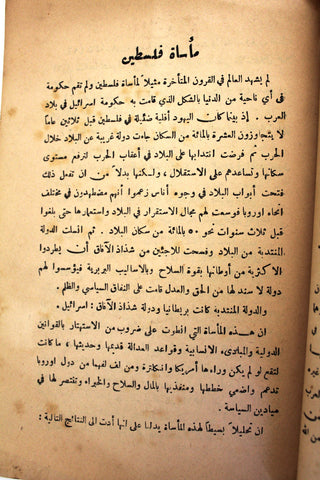 مأساة فلسطين
لم يشهد العالم في القرون المتأخرة مثيلاً لمأساة فلسطين ولم تقم حكومة
في أي ناحية من الدنيا بالشكل الذي قامت به حكومة اسرائيل في بلاد
العرب . إذ بينما كان اليهود أقلية ضئيلة في فلسطين قبل ثلاثين عاماً
لا يتجاوزون العشرة بالمائة من السكان جاءت دولة غريبة عن البلاد خلال
الحرب ثم فرضت انتدابها على البلاد في أعقاب الحرب لترفع مستوى
سكانها وتساعدهم على الاستقلال ، ولكنها بدلاً من ان تفعل ذلك
فتحت أبواب البلاد في وجوه اناس زعموا أنهم مضطهدون في مختلف
انحاء اوروبا فوسعت لهم مجال الاستقرار في البلاد واستعمارها حتى بلغوا
قبل ثلاث سنوات نحو ٥٠ بالمائة من سكان البلاد . ثم افسلت الدولة
المنتدبة عن البلاد وفسحت للاجئين من شذاذ الآفاق أن يطردوا
الاكثرية من أوطانها بقوة السلاح وبالاساليب البربرية فيؤسسوا لهم
دولة لا سند لها من الحق والعدل قامت على النفاق السياسي والظلم .
والدولة المنتدبة كانت بريطانيا ودولة شذاذ الآفاق : اسرائيل .
ان هذه المأساة التي انطوت على ضروب من الاستهتار بالقوانين
الدولية والمبادىء الانسانية وقواعد العدالة قديمها وحديثها ، ما كانت
لتقع لو لم يكن وراءها أمريكا وانكلترة ومن لف لفهما من دول اوروبا
تدعم واضعي خططها ومنفذيها بالمال والسلاح والخبراء وتنتصر لها في
ميادين السياسة .
ان تحليلاً بسيطاً لهذه المأساة يدلنا على انها أدت الى النتائج التالية :